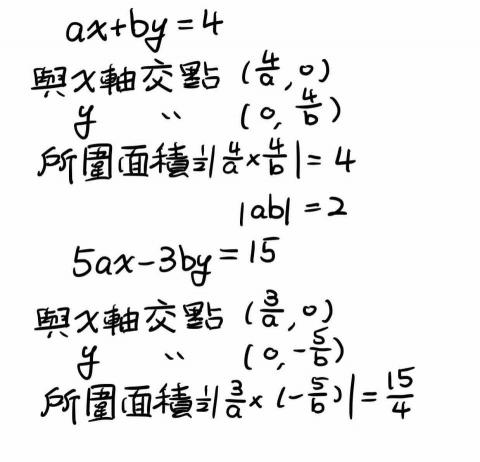 ax+by=4
與x軸交點 (4/a, 0)
y 〃 (0, 4/b)
所圍面積½|4/a × 4/b| = 4
|ab| = 2
5ax-3by=15
與x軸交點 (3/a, 0)
y 〃 (0, -5/b)
所圍面積½|3/a × (-5/b)| = 15/4